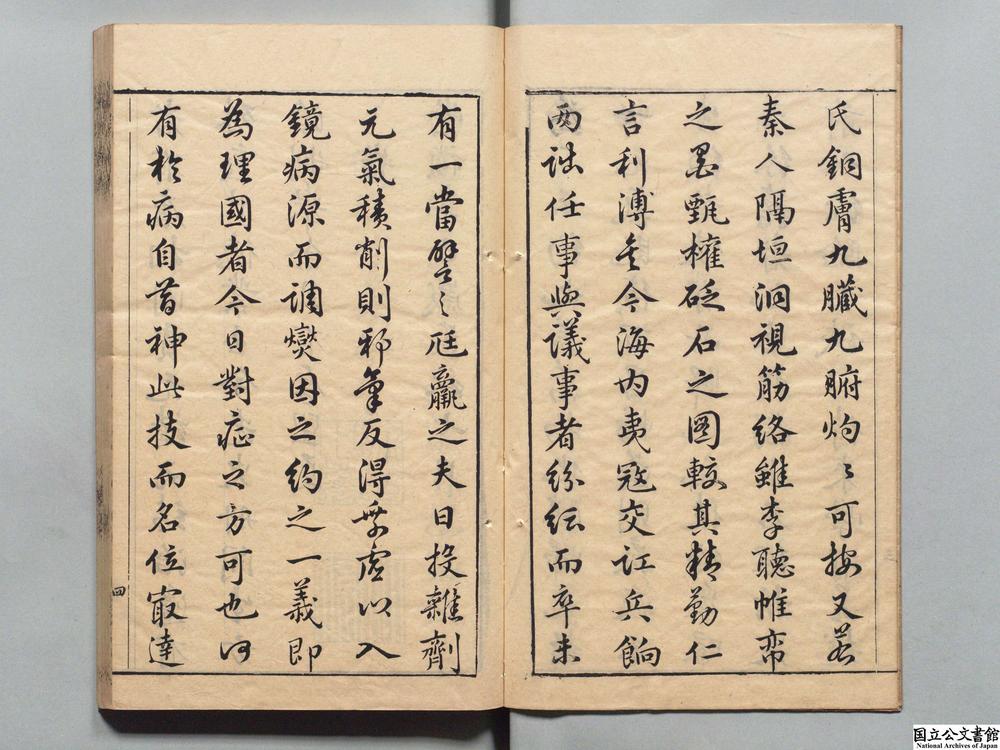 氏銅膚九臟九腑灼〻可按又若
秦人隔垣洞視筋絡雖李聽帷帟
之甄權砭石之圖較其精勤仁
言利溥矣今海内夷寇交訌兵餉
两詘任事與議事者紛紜而卒未
有一當譬之尫羸之夫日投雜劑
元氣積削則邪氣反得乗虚以入
鏡病源而調燮因之約之一義即
為理國者今日對症之方可也何
有於病自昔神此技而名位㝡達
四
国立公文書館
National Archives of Japan